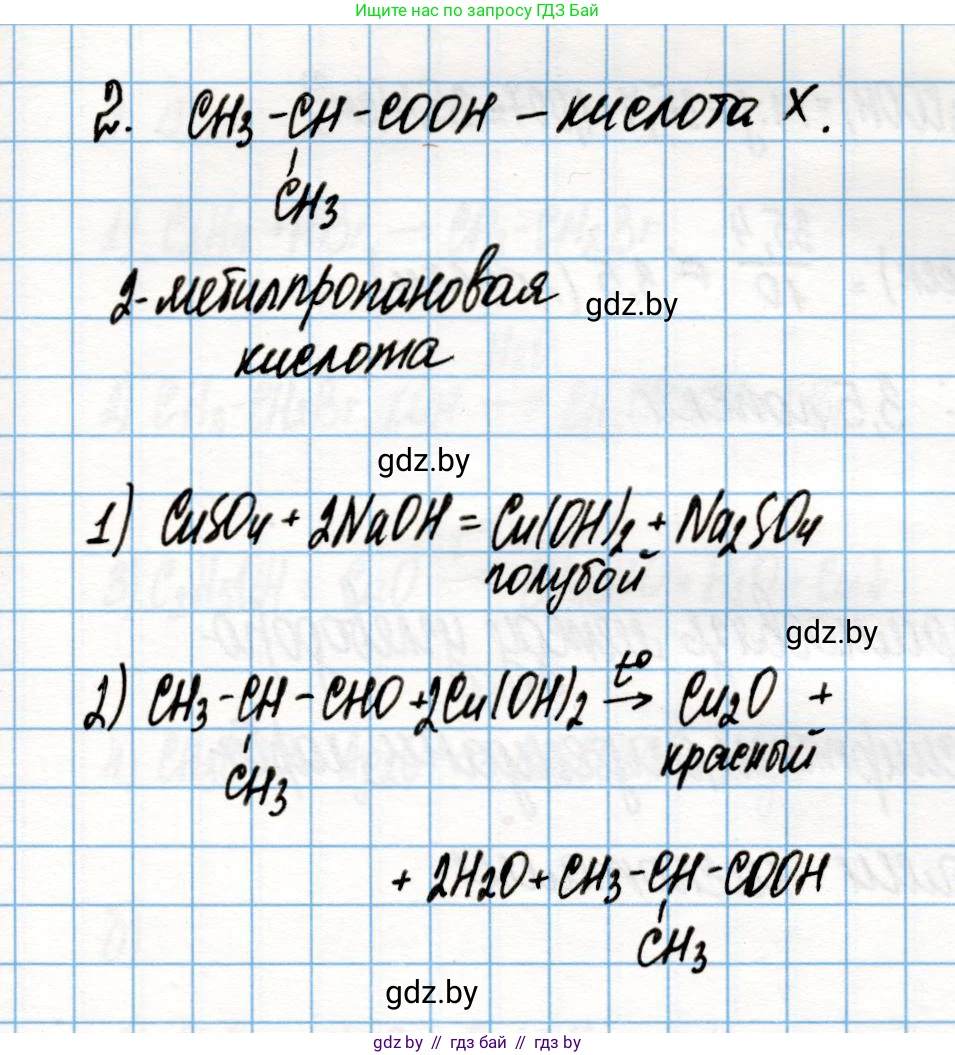 Ищите нас по запросу ГДЗ Бай
2. CH3 - CH - COOH – кислота X.
CH3
2-метилпропановая
gdz.by
кислота
gdz.by
1) CuSO4 + 2NaOH = Cu(OH)2 + Na2SO4
голубой
gdz.by
2) CH3 - CH - CHO + 2Cu(OH)2 t° → Cu2O +
красный
CH3
+ 2H2O + CH3 - CH - COOH
CH3
gdz.by
gdz.by // гдз бай // gdz.by